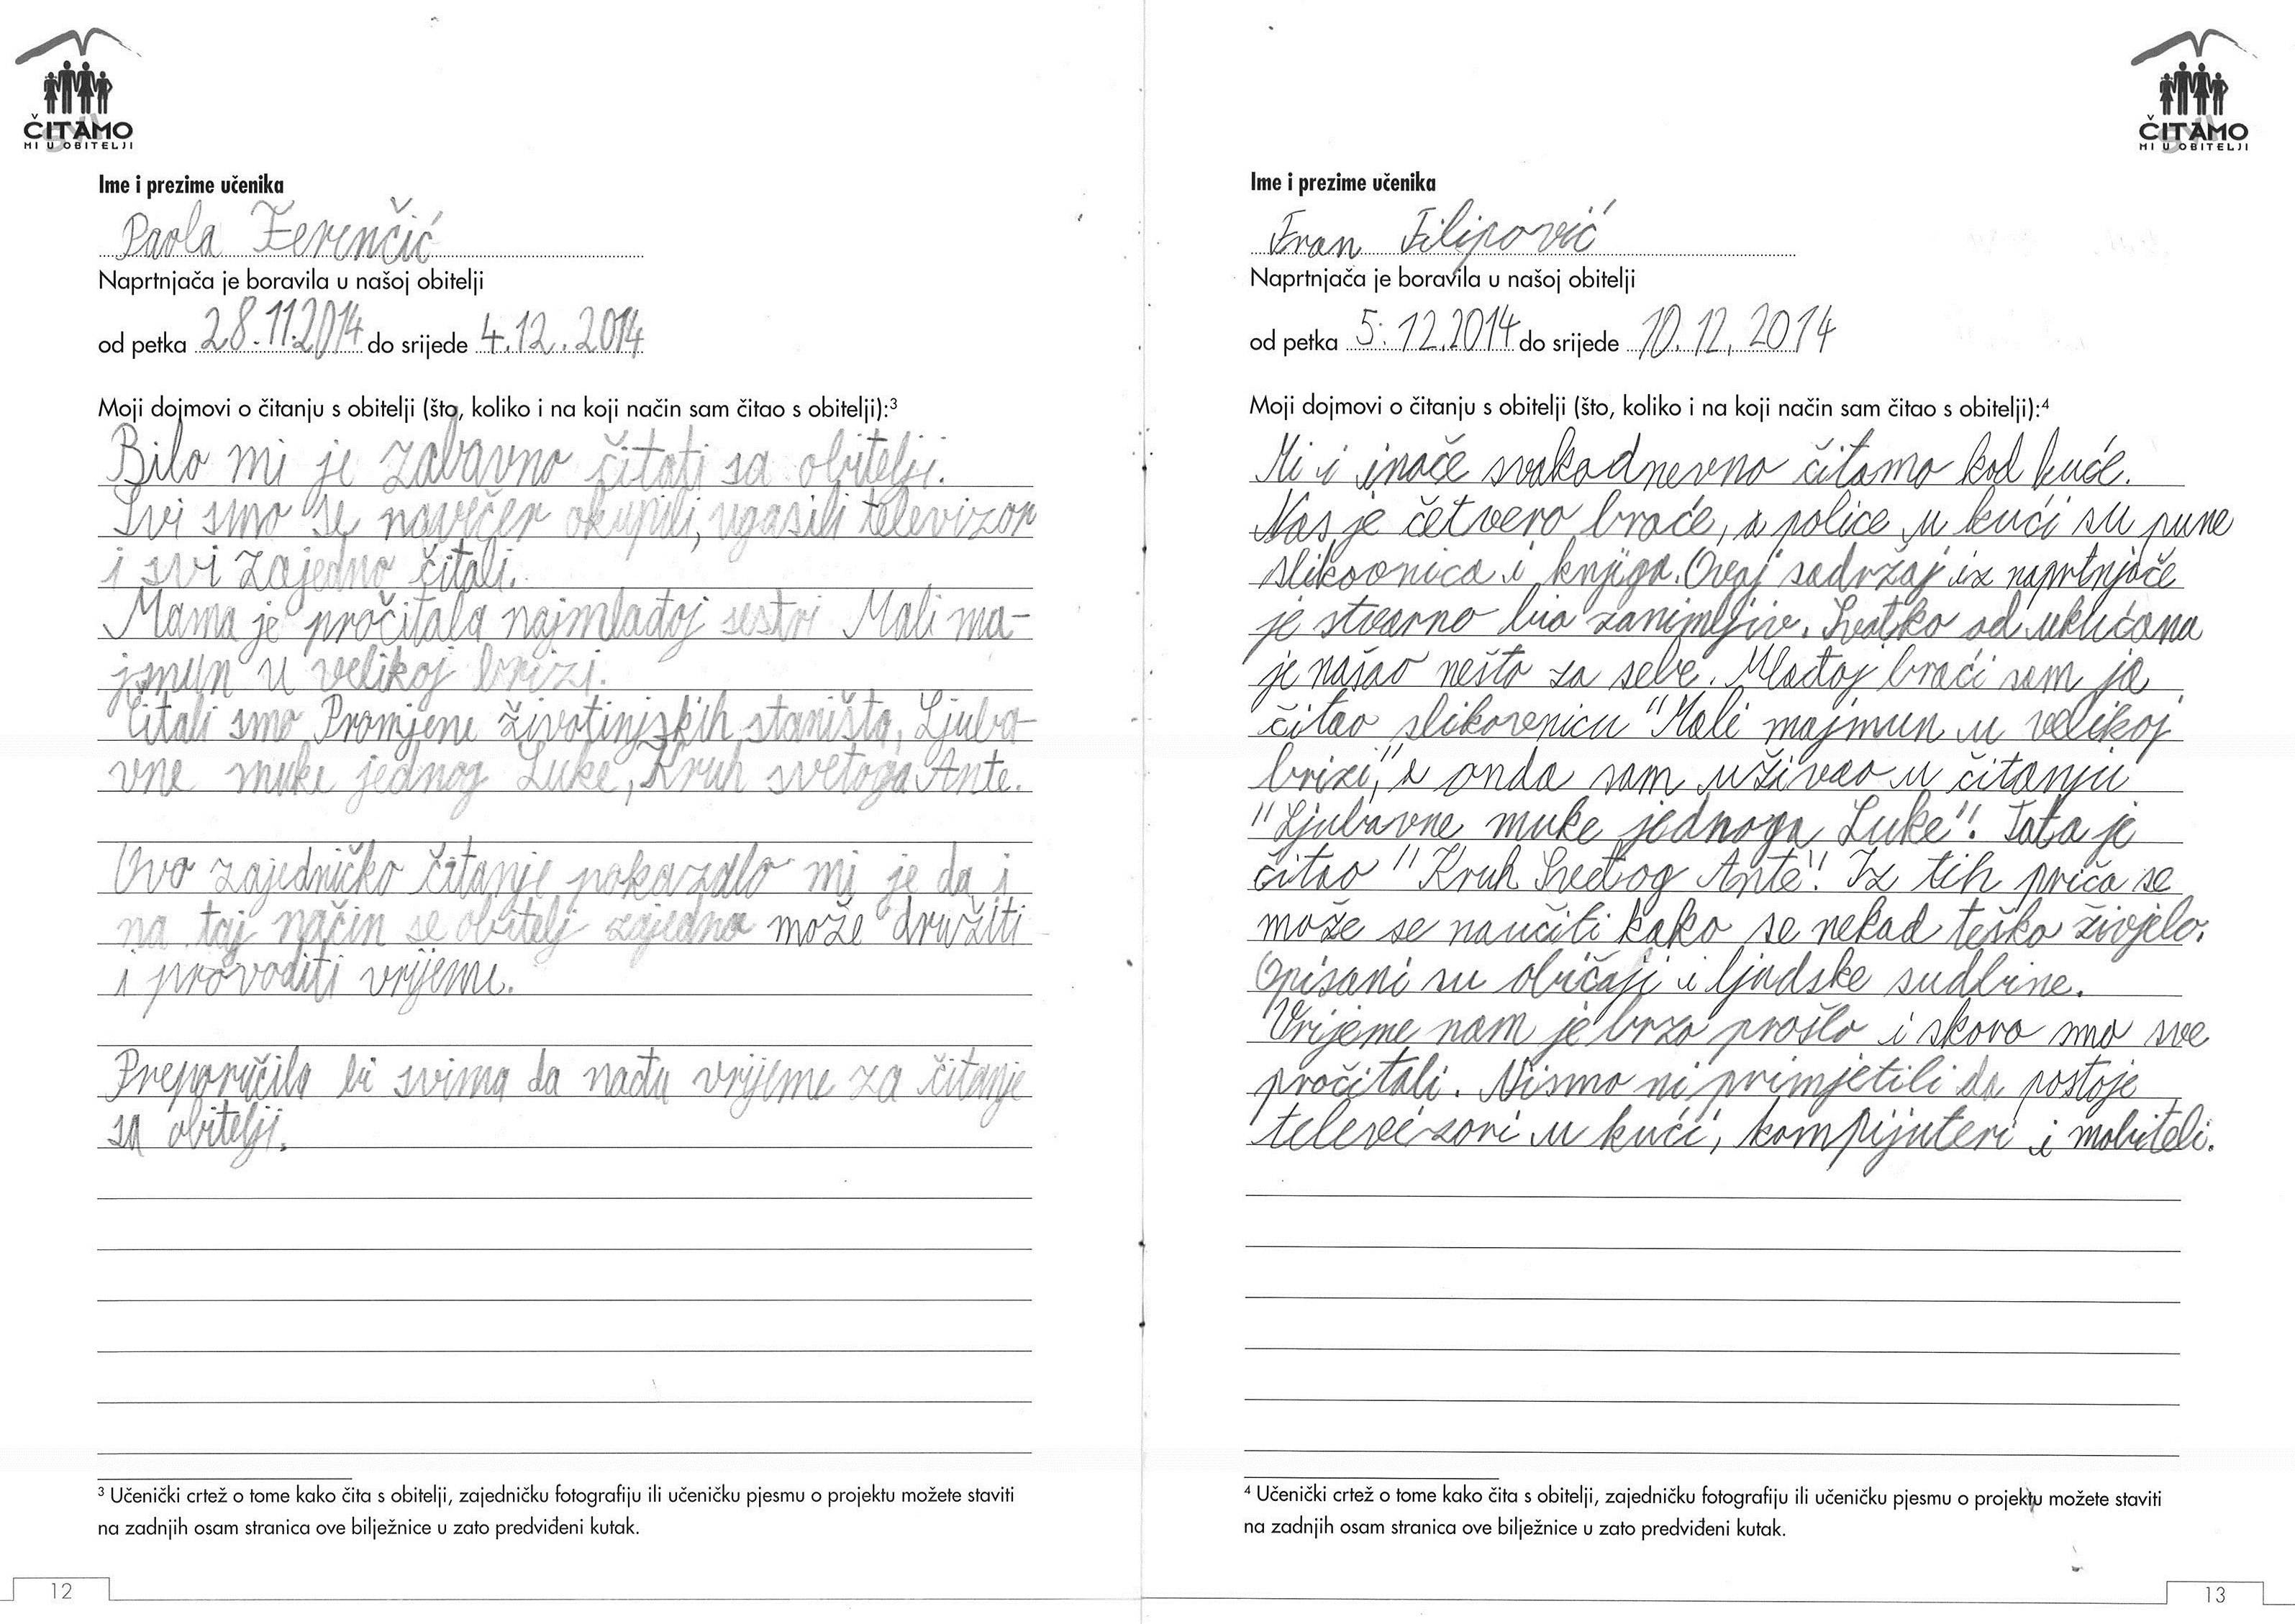 ČITAMO
MI U OBITELJI
Ime i prezime učenika
Paola Ferenčić
Naprtnjača je boravila u našoj obitelji
od petka 28.11.2014 do srijede 4.12.2014
Moji dojmovi o čitanju s obitelji (što, koliko i na koji način sam čitao s obitelji):³
Bilo mi je zabavno čitati sa obitelji.
Svi smo se navečer okupili, ugasili televizor
i svi zajedno čitali.
Mama je pročitala najmlađoj sestri Mali ma-
jmun u velikoj brizi.
Čitali smo Promjene životinjskih staništa, Ljuba-
vne muke jednog Luke, Kruh svetoga Ante.
Ovo zajedničko čitanje pokazalo mi je da i
na taj način se obitelj zajedno može družiti
i provoditi vrijeme.
Preporučila bi svima da nađu vrijeme za čitanje
sa obitelji.
³ Učenički crtež o tome kako čita s obitelji, zajedničku fotografiju ili učeničku pjesmu o projektu možete staviti
na zadnjih osam stranica ove bilježnice u zato predviđeni kutak.
12
ČITAMO
MI U OBITELJI
Ime i prezime učenika
Fran Filipović
Naprtnjača je boravila u našoj obitelji
od petka 5.12.2014 do srijede 10.12.2014
Moji dojmovi o čitanju s obitelji (što, koliko i na koji način sam čitao s obitelji):⁴
Mi i inače svakodnevno čitamo kod kuće.
Nas je četvero braće, a police u kući su pune
slikovnica i knjiga. Ovaj sadržaj iz naprtnjače
je stvarno bio zanimljiv. Svatko od ukućana
je našao nešto za sebe. Mlađoj braći sam ja
čitao slikovnicu "Mali majmun u velikoj
brizi", a onda sam uživao u čitanju
"Ljubavne muke jednoga Luke". Tata je
čitao "Kruh Svetog Ante". Iz tih priča se
može se naučiti kako se nekad teško živjelo.
Opisani su običaji i ljudske sudbine.
Vrijeme nam je brzo prošlo i skoro smo sve
pročitali. Nismo ni primjetili da postoje
televizori u kući, kompijuteri i mobiteli.
⁴ Učenički crtež o tome kako čita s obitelji, zajedničku fotografiju ili učeničku pjesmu o projektu možete staviti
na zadnjih osam stranica ove bilježnice u zato predviđeni kutak.
13